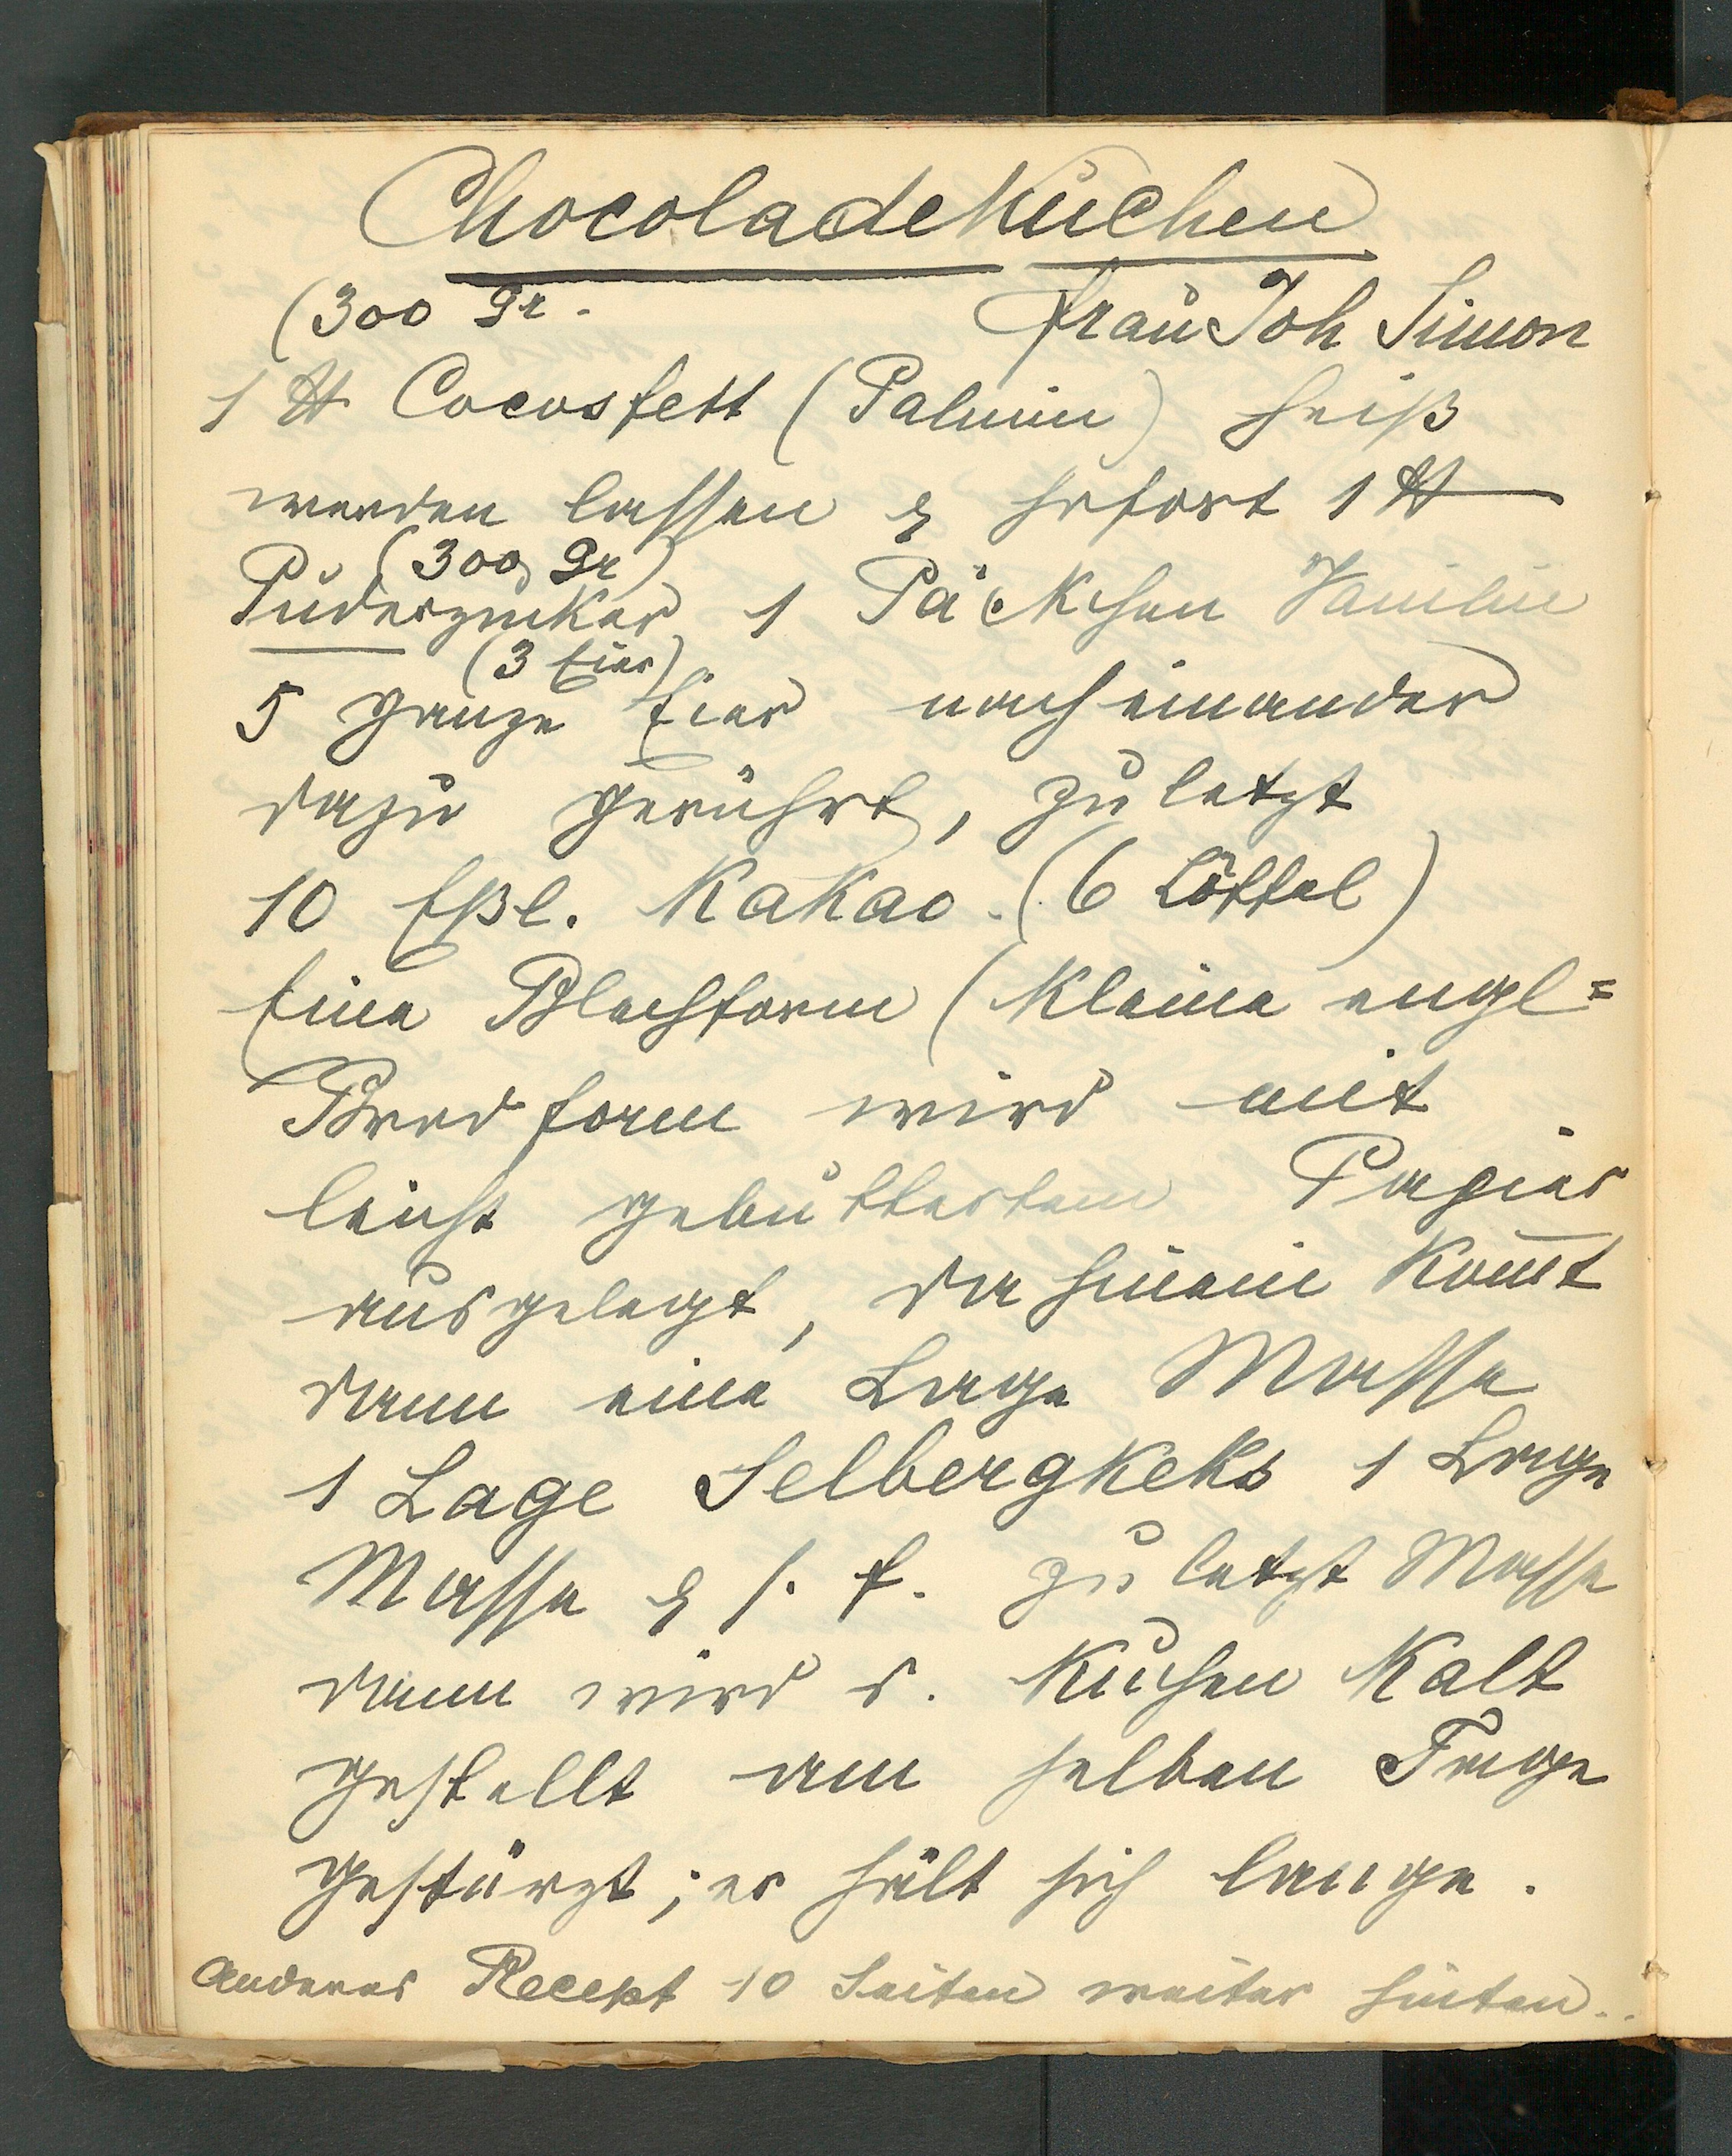 Chocoladekuchen
(300 gr.
Frau Joh Simon
1 ℔ Cocosfett (Palmin) heiß
werden lassen & sofort 1 ℔
(300 gr)
Puderzucker 1 Päckchen Vanilin
(3 Eier)
5 ganze Eier nach einander
dazu gerührt, zuletzt
10 Eßl. Kakao. (6 Löffel)
Eine Blechform (kleine engl=
Brodform wird mit
leicht gebuttertem Papier
ausgelegt, da hinein kom̄t
dann eine Lage Masse
1 Lage Selbergkeks 1 Lage
Masse & s. f. zuletzt Masse
dann wird d. Kuchen kalt
gestellt am selben Tage
gestürzt; er hält sich lange.
Anderes Recept 10 Seiten weiter hinten..